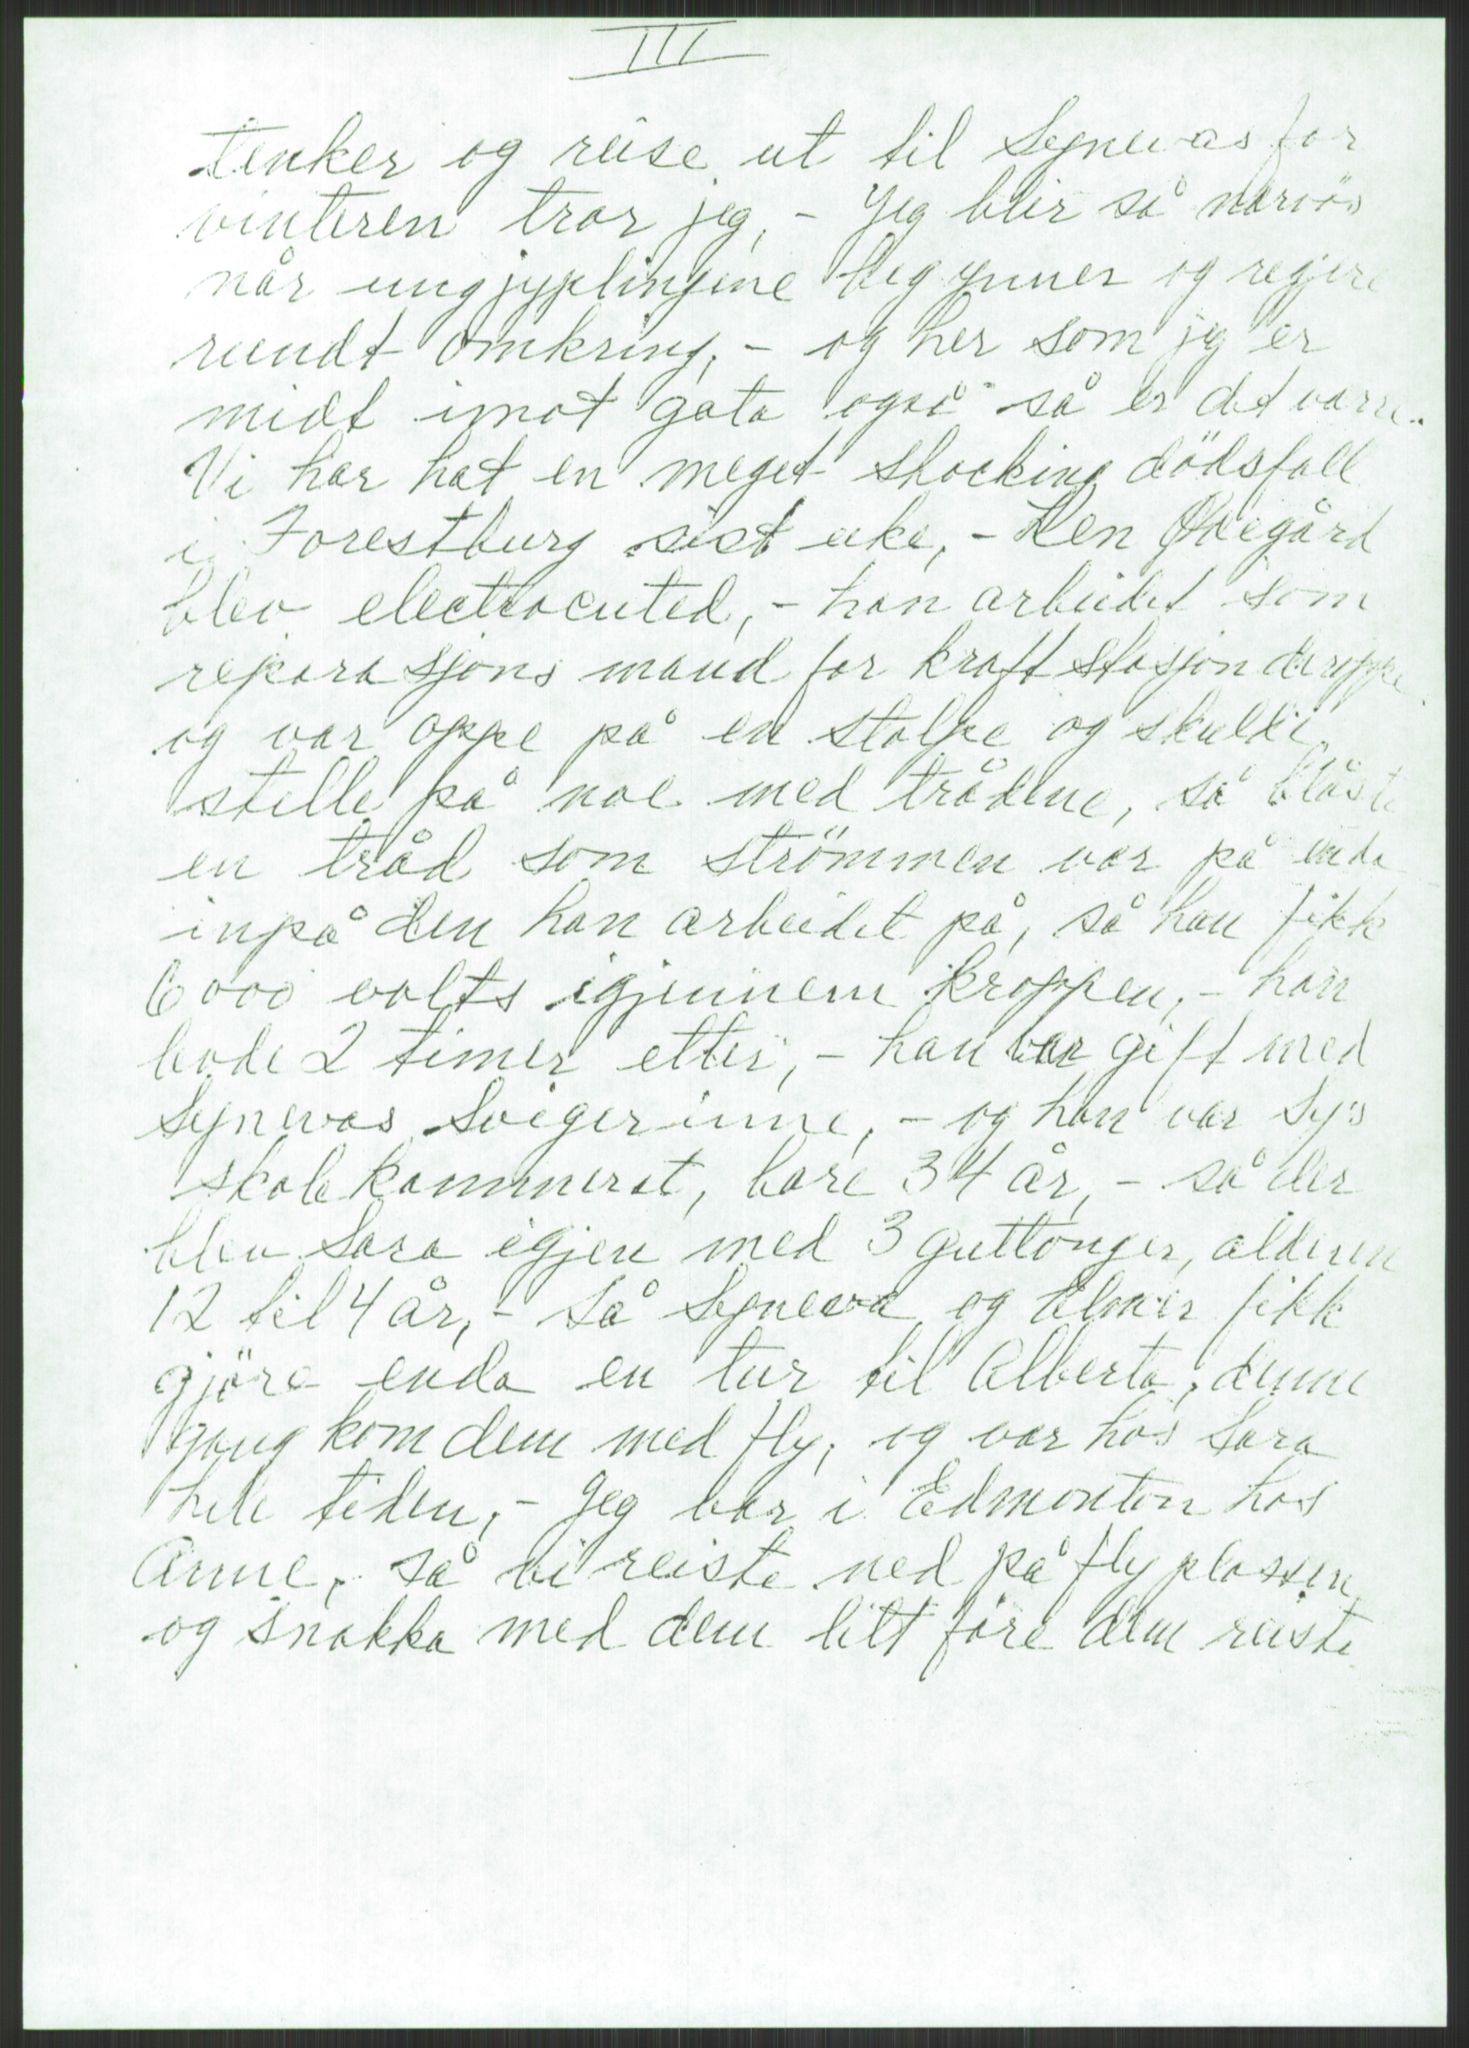 III
tenker og reise ut til Synevas for
vinteren tror jeg, – Jeg blir så narvös
når ungjyplingene begynner og regjere
rundt omkring, – og her som jeg er
midt imot gata også så er det varre.
Vi har hat en meget shocking dödsfall
i Forestburg sist uke, – Len Øvegård
blev electrocuted, – han arbeidet som
reparasjons mand for kraft stasjon deroppe
og var oppe på en stolpe og skulde
stelle på noe med trådene, så blåste
en tråd som strömmen var på enda
inpå den han arbeidet på, så han fikk
6000 volts igjennem kroppen, – han
levde 2 timer etter, – han var gift med
Synevas Svigerinne, – og han var Sy's
skolekammerat, bare 34 år, – så der
blev Sara igjen med 3 guttonger, alderen
12 til 4 år, – så Syneva og Elmer fikk
gjöre enda en tur til Alberta, denne
gang kom dem med fly, og var hos Sara
hele tiden, – Jeg var i Edmonton hos
Anne, så vi reiste ned på flyplassen
og snakka med dem litt före dem reiste